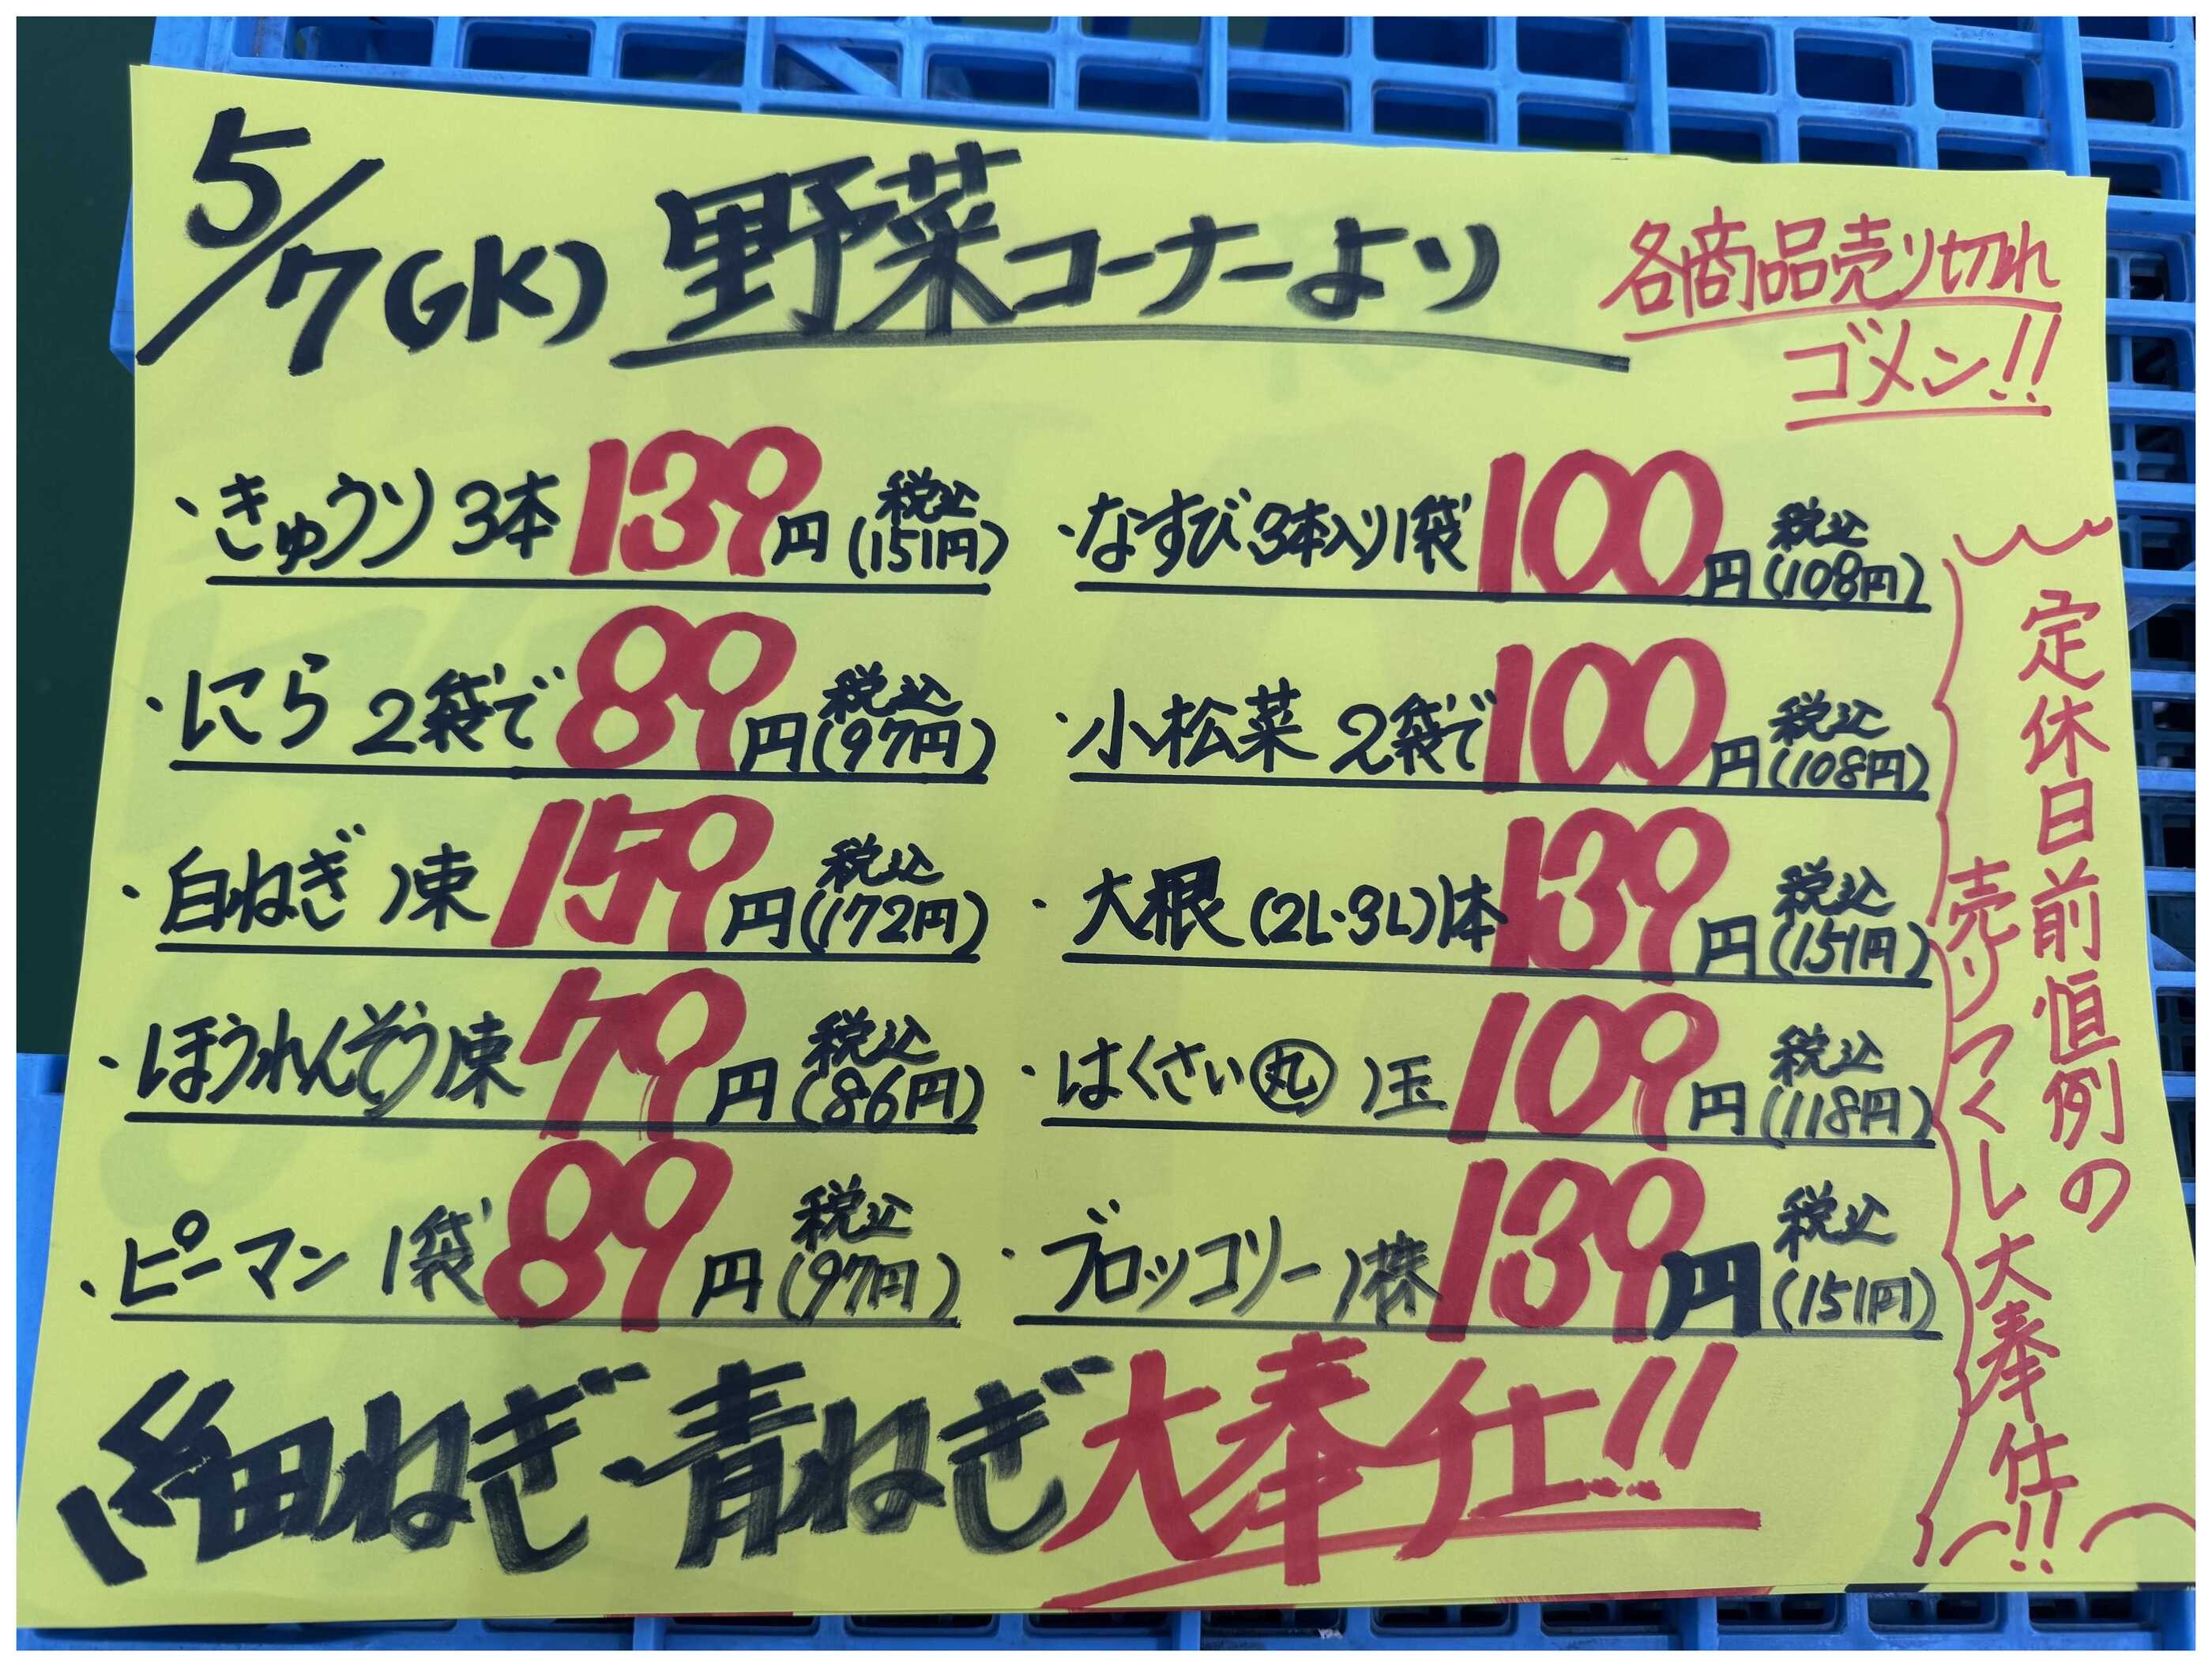 5/7(GK) 野菜コーナーより
各商品売り切れ
ゴメン!!
・きゅうり 3本 139円 税込(151円)
・なすび 3本入り1袋 100円 税込(108円)
・にら 2袋で 89円 税込(97円)
・小松菜 2袋で 100円 税込(108円)
・白ねぎ 1束 159円 税込(172円)
・大根(2L・3L)1本 139円 税込(151円)
・ほうれんそう1束 79円 税込(86円)
・はくさい 丸 1玉 109円 税込(118円)
・ピーマン 1袋 89円 税込(97円)
・ブロッコリー 1株 139円 税込(151円)
細ねぎ・青ねぎ大奉仕!!
定休日前恒例の
売りつくし大奉仕!!